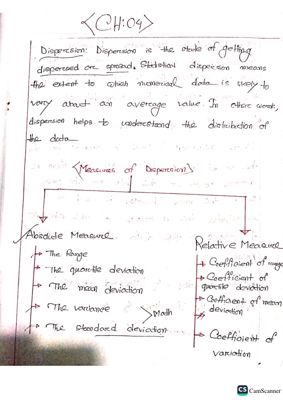 <CH:04>
Dispersion: Dispersion is the state of getting
dispersed or spread. Statistical dispersion means
the extent to which numerical data is likely to
vary about an average value. In other word,
dispersion helps to understand the distribution of
the data
<Measures of Dispersion>
Absolute Measure
→ The Range
→ The quartile deviation
→ The mean deviation
→ The variance
→ The standard deviation
Math
Relative Measure
→ Coefficient of range
→ Coefficient of
quartile deviation
→ Coefficient of mean
deviation
→ Coefficient of
variation
CS CamScanner